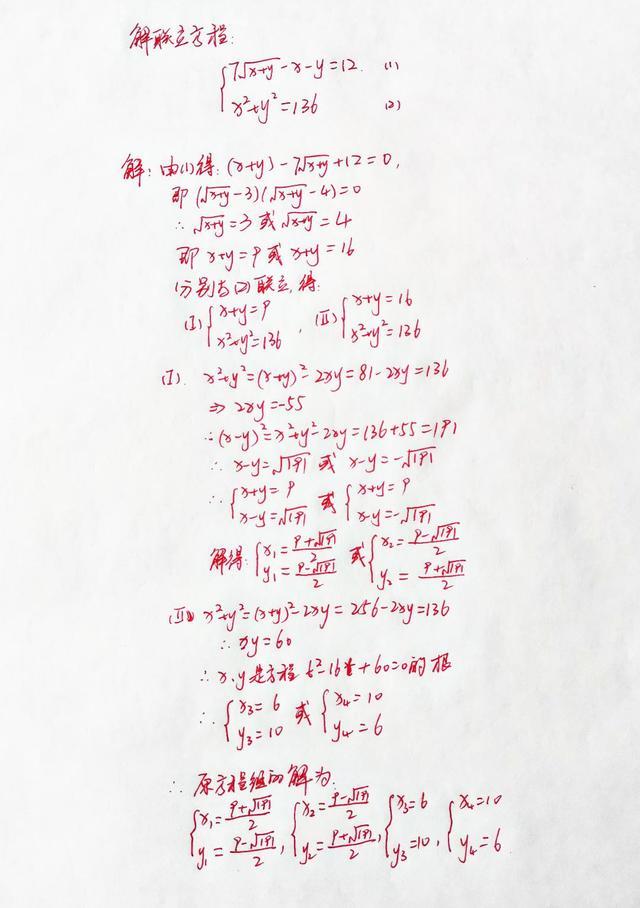 解联立方程:
{ 7√(x+y) - x - y = 12 (1)
x² + y² = 136 (2)
解: 由(1)得: (x+y) - 7√(x+y) + 12 = 0,
即 (√(x+y) - 3)(√(x+y) - 4) = 0
∴ √(x+y) = 3 或 √(x+y) = 4
即 x+y = 9 或 x+y = 16
分别与(2)联立,得:
(I) { x+y = 9 , x²+y² = 136 , (II) { x+y = 16 , x²+y² = 136
(I). x²+y² = (x+y)² - 2xy = 81 - 2xy = 136
⇒ 2xy = -55
∴ (x-y)² = x²+y² - 2xy = 136 + 55 = 191
∴ x-y = √191 或 x-y = -√191
∴ { x+y = 9 , x-y = √191 或 { x+y = 9 , x-y = -√191
解得: { x₁ = (9+√191)/2 , y₁ = (9-√191)/2 或 { x₂ = (9-√191)/2 , y₂ = (9+√191)/2
(II) x²+y² = (x+y)² - 2xy = 256 - 2xy = 136
∴ xy = 60
∴ x.y是方程 t² - 16t + 60 = 0 的根
∴ { x₃ = 6 , y₃ = 10 或 { x₄ = 10 , y₄ = 6
∴ 原方程组的解为:
{ x₁ = (9+√191)/2 , y₁ = (9-√191)/2 , { x₂ = (9-√191)/2 , y₂ = (9+√191)/2 , { x₃ = 6 , y₃ = 10 , { x₄ = 10 , y₄ = 6